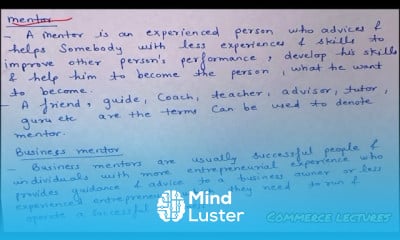 mentor
- A mentor is an experienced person who advices &
helps Somebody with less experiences & skills to
improve other person's performance, develop his skills
& help him to become the person, what he want
to become.
- A friend, guide, Coach, teacher, advisor, tutor,
guru etc are the terms Can be used to denote
mentor.
Business mentor
- Business mentors are usually successful people &
undividuals with more entrepreneurial experience who
provides guidance & advice to a business owner or less
experienced they need to run &
operate a successful
Mind
Luster
COMMERCE LECTURES